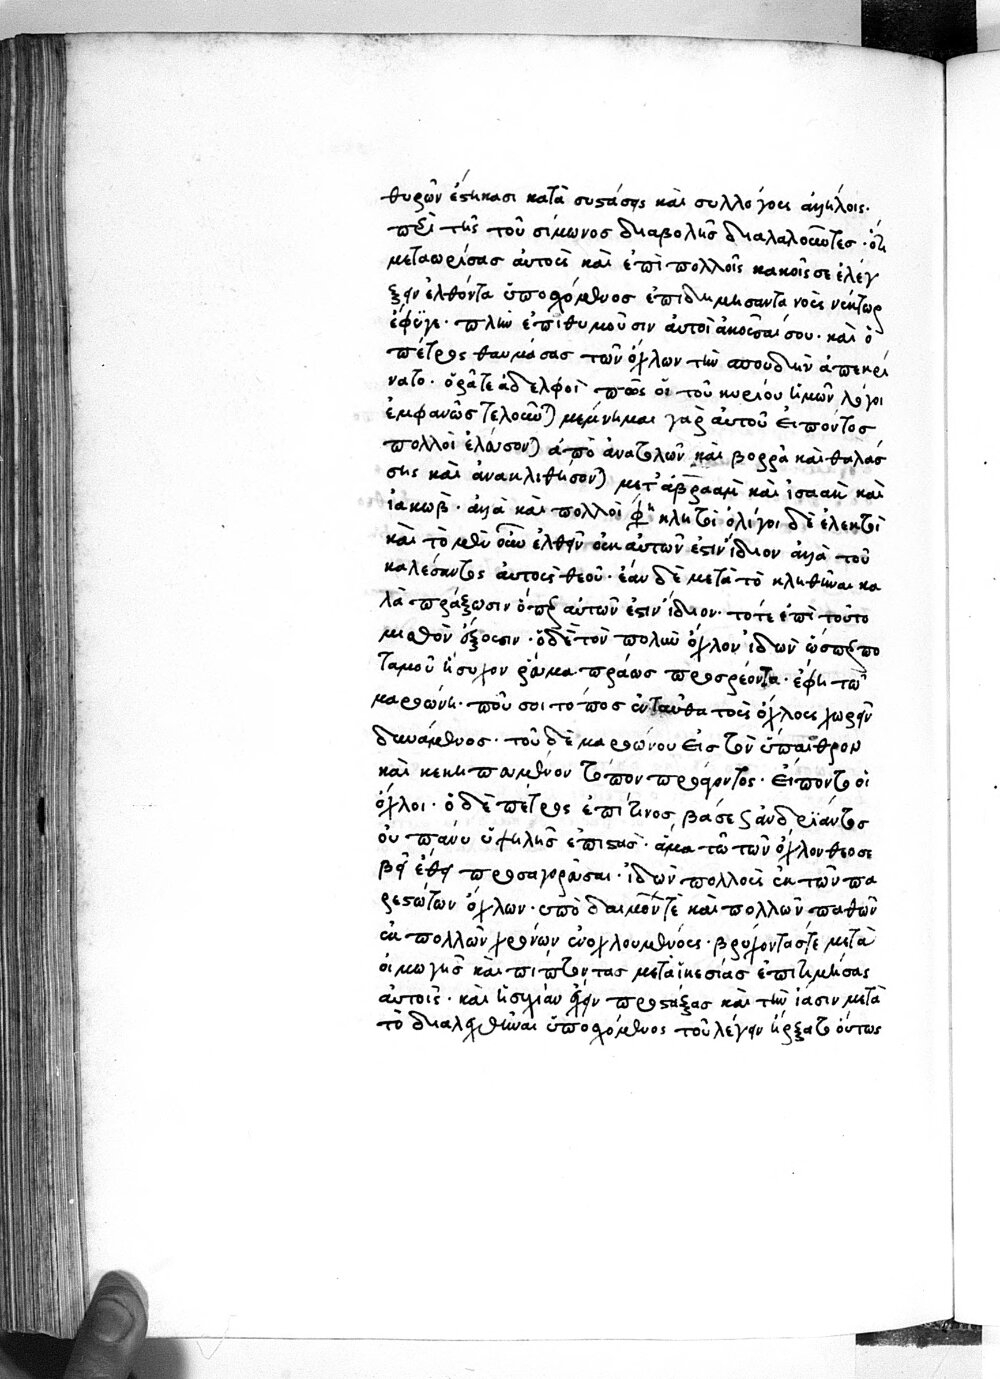 θυρῶν ἑστήκασι κατὰ συστάσεις καὶ συλλόγους ἀλλήλοις·
περὶ τῆς τοῦ σίμωνος διαβολῆς διαλαλοῦντες· ὅτι
μεταωρίσας αὐτοὺς καὶ ἐπὶ πολλοῖς κακοῖς σε ἐλέγ
ξειν ἐλθόντα ὑποσχόμενος ἐπιδημήσαντα νοὲς νύκτωρ
ἔφυγε· πλὴν ἐπιθυμοῦσιν αὐτοὶ ἀκοῦσαί σου· καὶ ὁ
πέτρος θαυμάσας τῶν ὄχλων τὴν σπουδὴν ἀπεκρί
νατο· ὁρᾶτε ἀδελφοὶ πῶς οἱ τοῦ κυρίου ἡμῶν λόγοι
ἐμφανῶς τελοῦνται μέμνημαι γὰρ αὐτοῦ εἰπόντος
πολλοὶ ἐλεύσονται ἀπὸ ἀνατολῶν καὶ βορρᾶ καὶ θαλάσ
σης καὶ ἀνακλιθήσονται μετ' ἀβραὰμ καὶ ἰσαὰκ καὶ
ἰακώβ· ἀλλὰ καὶ πολλοὶ φησὶ κλητοὶ ὀλίγοι δὲ ἐλεκτοὶ
καὶ τὸ μὲν οὖν ἐλθεῖν οὐκ αὐτῶν ἐστιν ἴδιον ἀλλὰ τοῦ
καλέσαντος αὐτοὺς θεοῦ· ἐὰν δὲ μετὰ τὸ κληθῆναι κα
λὰ πράξωσιν ὅπερ αὐτῶν ἐστιν ἴδιον· τότε ἐπὶ τούτο
μισθὸν ἕξουσιν· ὁ δὲ τὸν πολὺν ὄχλον ἰδὼν ὥσπερ πο
ταμοῦ ἥσυχον ῥεῦμα πράως προσρέοντα· ἔφη τῶ
μαροώνη· ποῦ σοι τόπος ἐνταῦθα τοὺς ὄχλους χωρεῖν
δυνάμενος· τοῦ δὲ μαροώνου εἰς τὸν ὕπαιθρον
καὶ κεκηπευμένον τόπον προάγοντος· εἵποντο οἱ
ὄχλοι· ὁ δὲ πέτρος ἐπί τινος βάσεως ἀνδριάντος
οὐ πάνυ ὑψηλῆς ἐπιστὰς· ἅμα τῶ τῶν ὄχλον θεοσε
βεῖ ἔθει προσαγορεῦσαι· ἰδὼν πολλοὺς ἐκ τῶν πα
ρεστώτων ὄχλων· ὑπὸ δαιμόνων τὲ καὶ πολλῶν παθῶν
ἐκ πολλῶν χρόνων ἐνοχλουμένους· βρύχοντάς τε μετὰ
οἰμωγῆς καὶ πίπτοντας μετὰ ἱκεσίας ἐπιτιμήσας
αὐτοῖς· καὶ ἡσυχίαν ἔχειν προστάξας καὶ τὴν ἴασιν μετὰ
τὸ διαλεχθῆναι ὑποσχόμενος τοῦ λέγειν ἤρξατο οὕτως